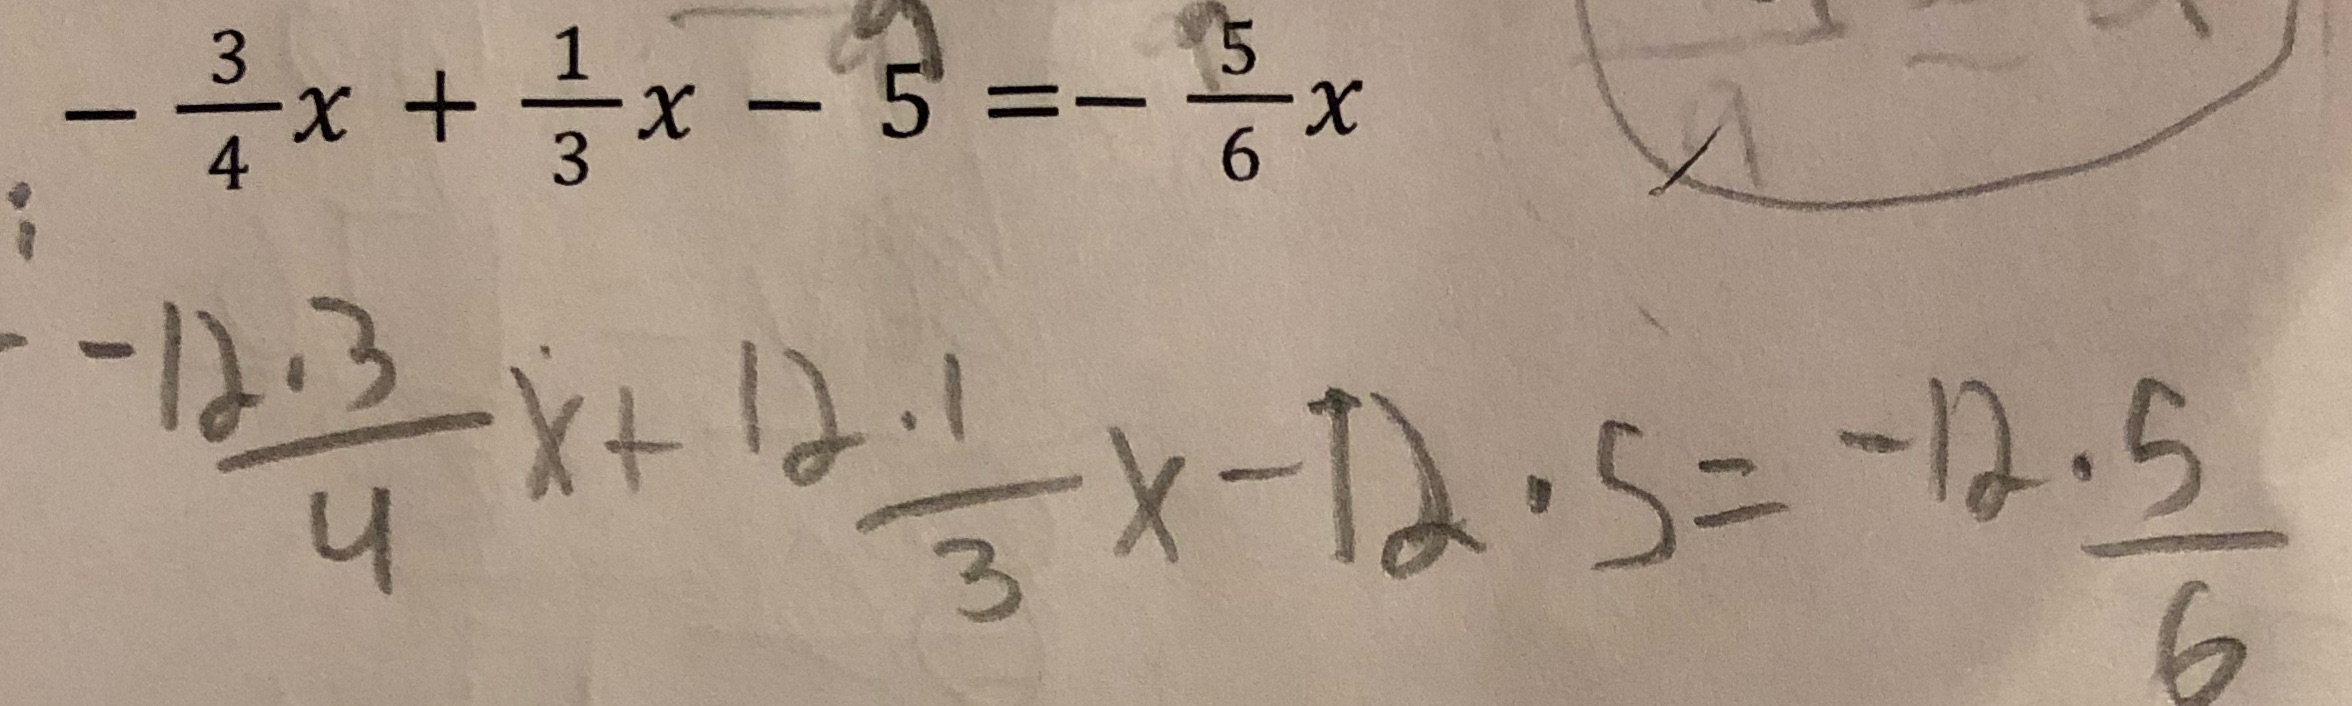 -\frac{3}{4}x + \frac{1}{3}x - 5 = -\frac{5}{6}x
-\frac{12 \cdot 3}{4}x + \frac{12 \cdot 1}{3}x - 12 \cdot 5 = -12 \cdot \frac{5}{6}